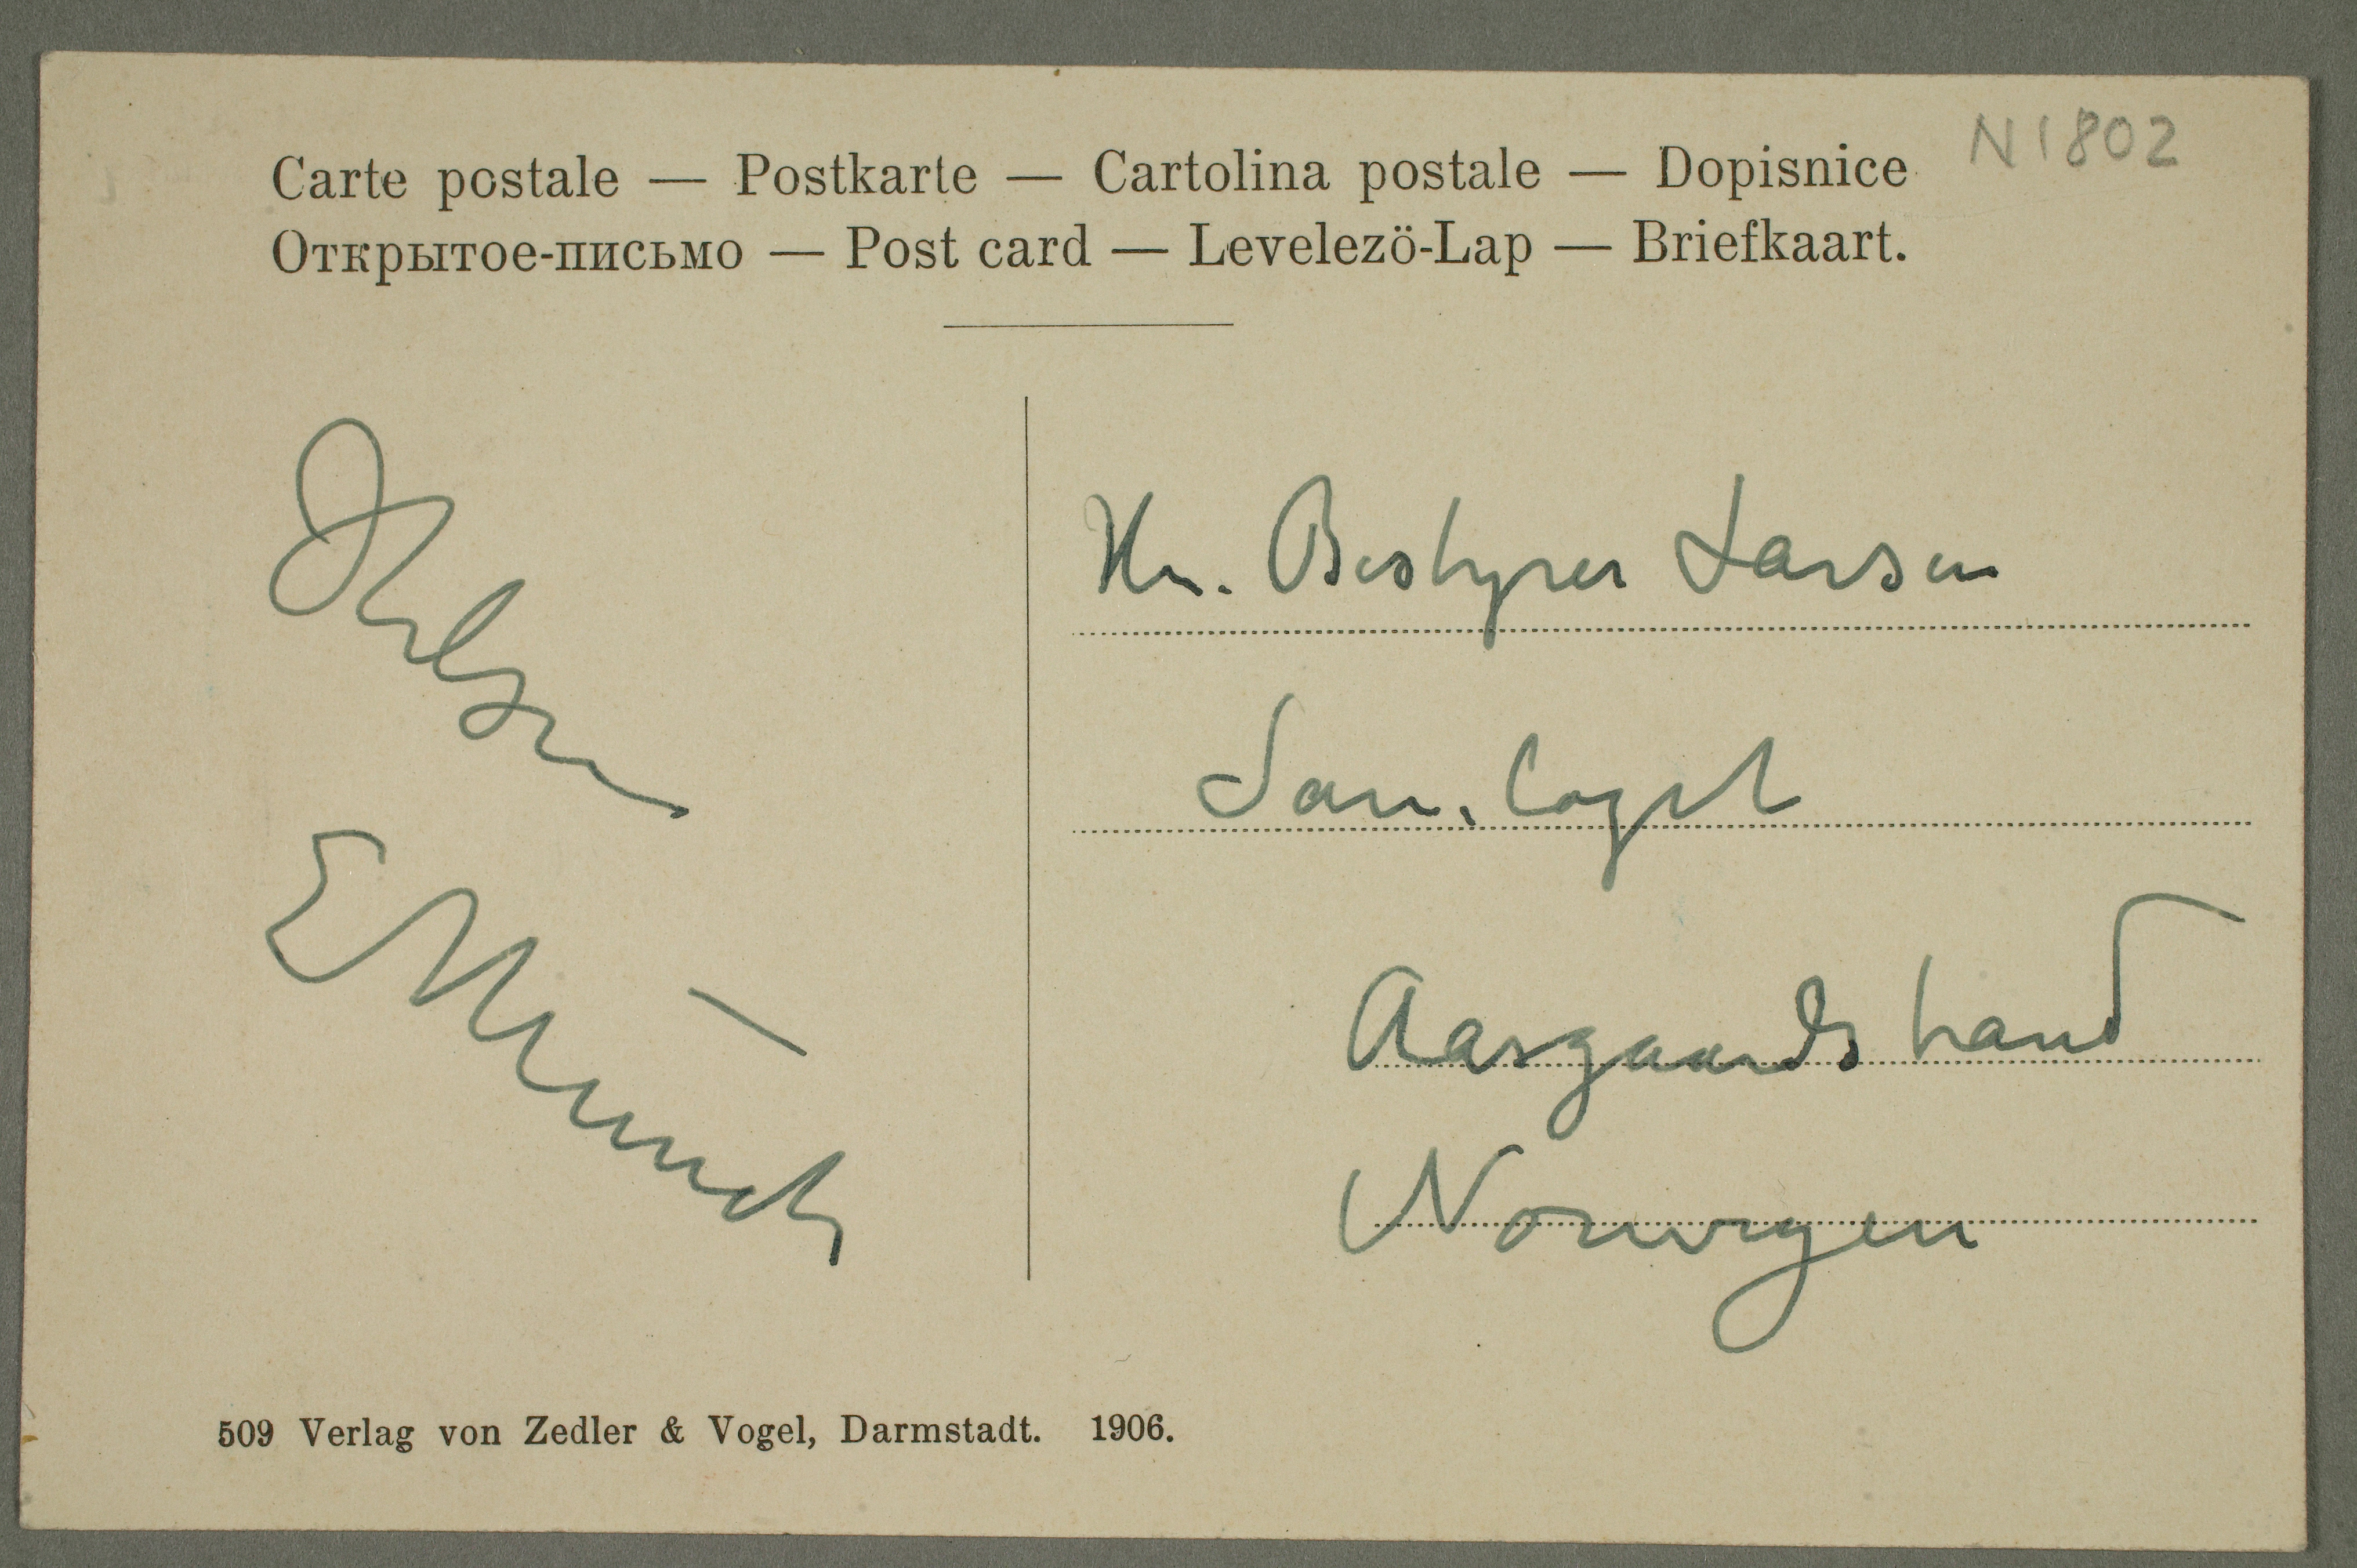 N1802
Carte postale — Postkarte — Cartolina postale — Dopisnice
Открытое-письмо — Post card — Levelezö-Lap — Briefkaart.
Hilsen
E Munch
Hr. Bestyrer Larsen
Sam. laget
Aasgaardstrand
Norwegen
509 Verlag von Zedler & Vogel, Darmstadt. 1906.